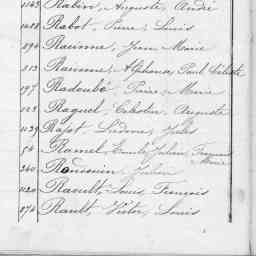 1143 Rabin, Auguste, André
1088 Rabot, Pierre, Louis
894 Raimme, Jean Marie
313 Rainne, Alphonse, Paul Céleste
197 Radoubé, Pierre, Marie
Raguel, Célestin, Auguste
1139 Rajot, Isidore, Jules
54 Ramel, Emile Julien, François Marie
340 Julien
1120 Raoult, Louis François
874 Rault, Victor, Louis